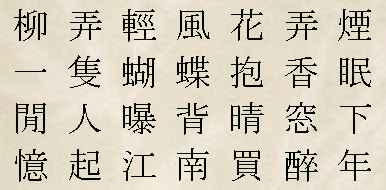 柳弄輕風花弄煙
一隻蝴蝶抱香眠
閒人曝背晴窓下
憶起江南買醉年